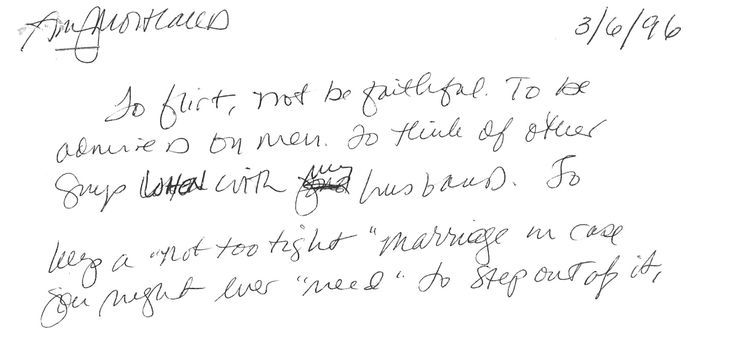 3/6/96
To flirt, not be faithful. To be
admired by men. To think of other
guys when with my husband. To
keep a "not too tight" marriage in case
you might ever "need" to step out of it,